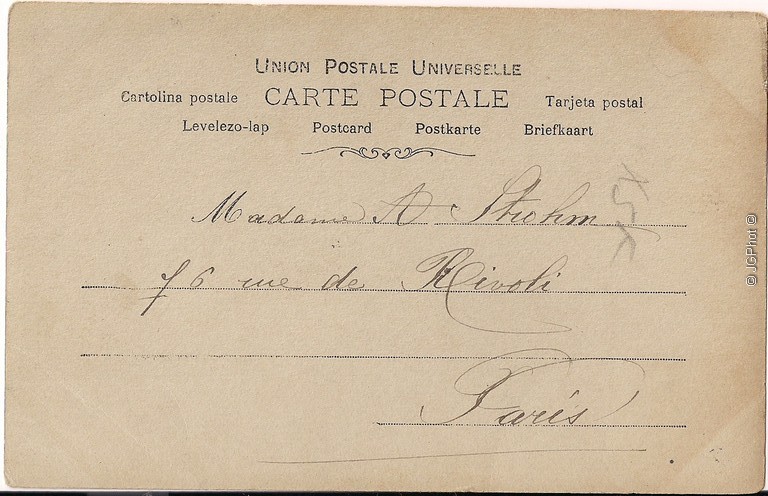 UNION POSTALE UNIVERSELLE
Cartolina postale CARTE POSTALE Tarjeta postal
Levelezo-lap Postcard Postkarte Briefkaart
Madame A Strohm
76 rue de Rivoli
Paris
© JGPhot ©